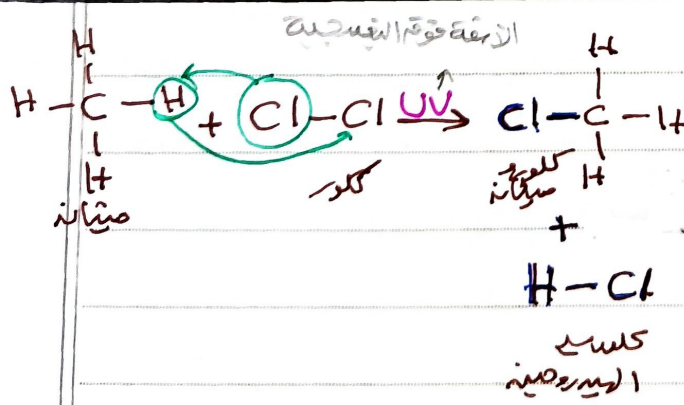 الأشعة فوق البنفسجية
H
H - C - H + Cl - Cl UV → Cl - C - H
H
H
H
ميثان
كلور
كلورو
ميثان
+
H - Cl
كلوريد
الهيدروجين